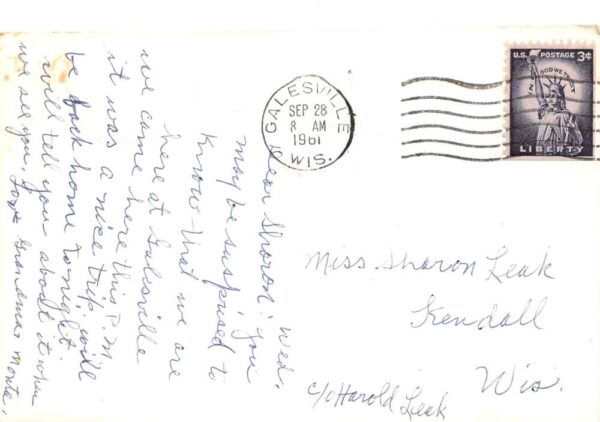 Wed.
Dear Sharon: you
may be suspised to
know that we are
here at Galesville
we came here this P.M.
it was a nice trip, will
be back home tonight.
will tell you about it when
we see you. Love Grandma Monta.
GALESVILLE
SEP 28
8 AM
1961
WIS.
U.S. POSTAGE 3¢
IN GOD WE TRUST
LIBERTY
Miss. Sharon Leak
Kendall
Wis.
c/o Harold Leak